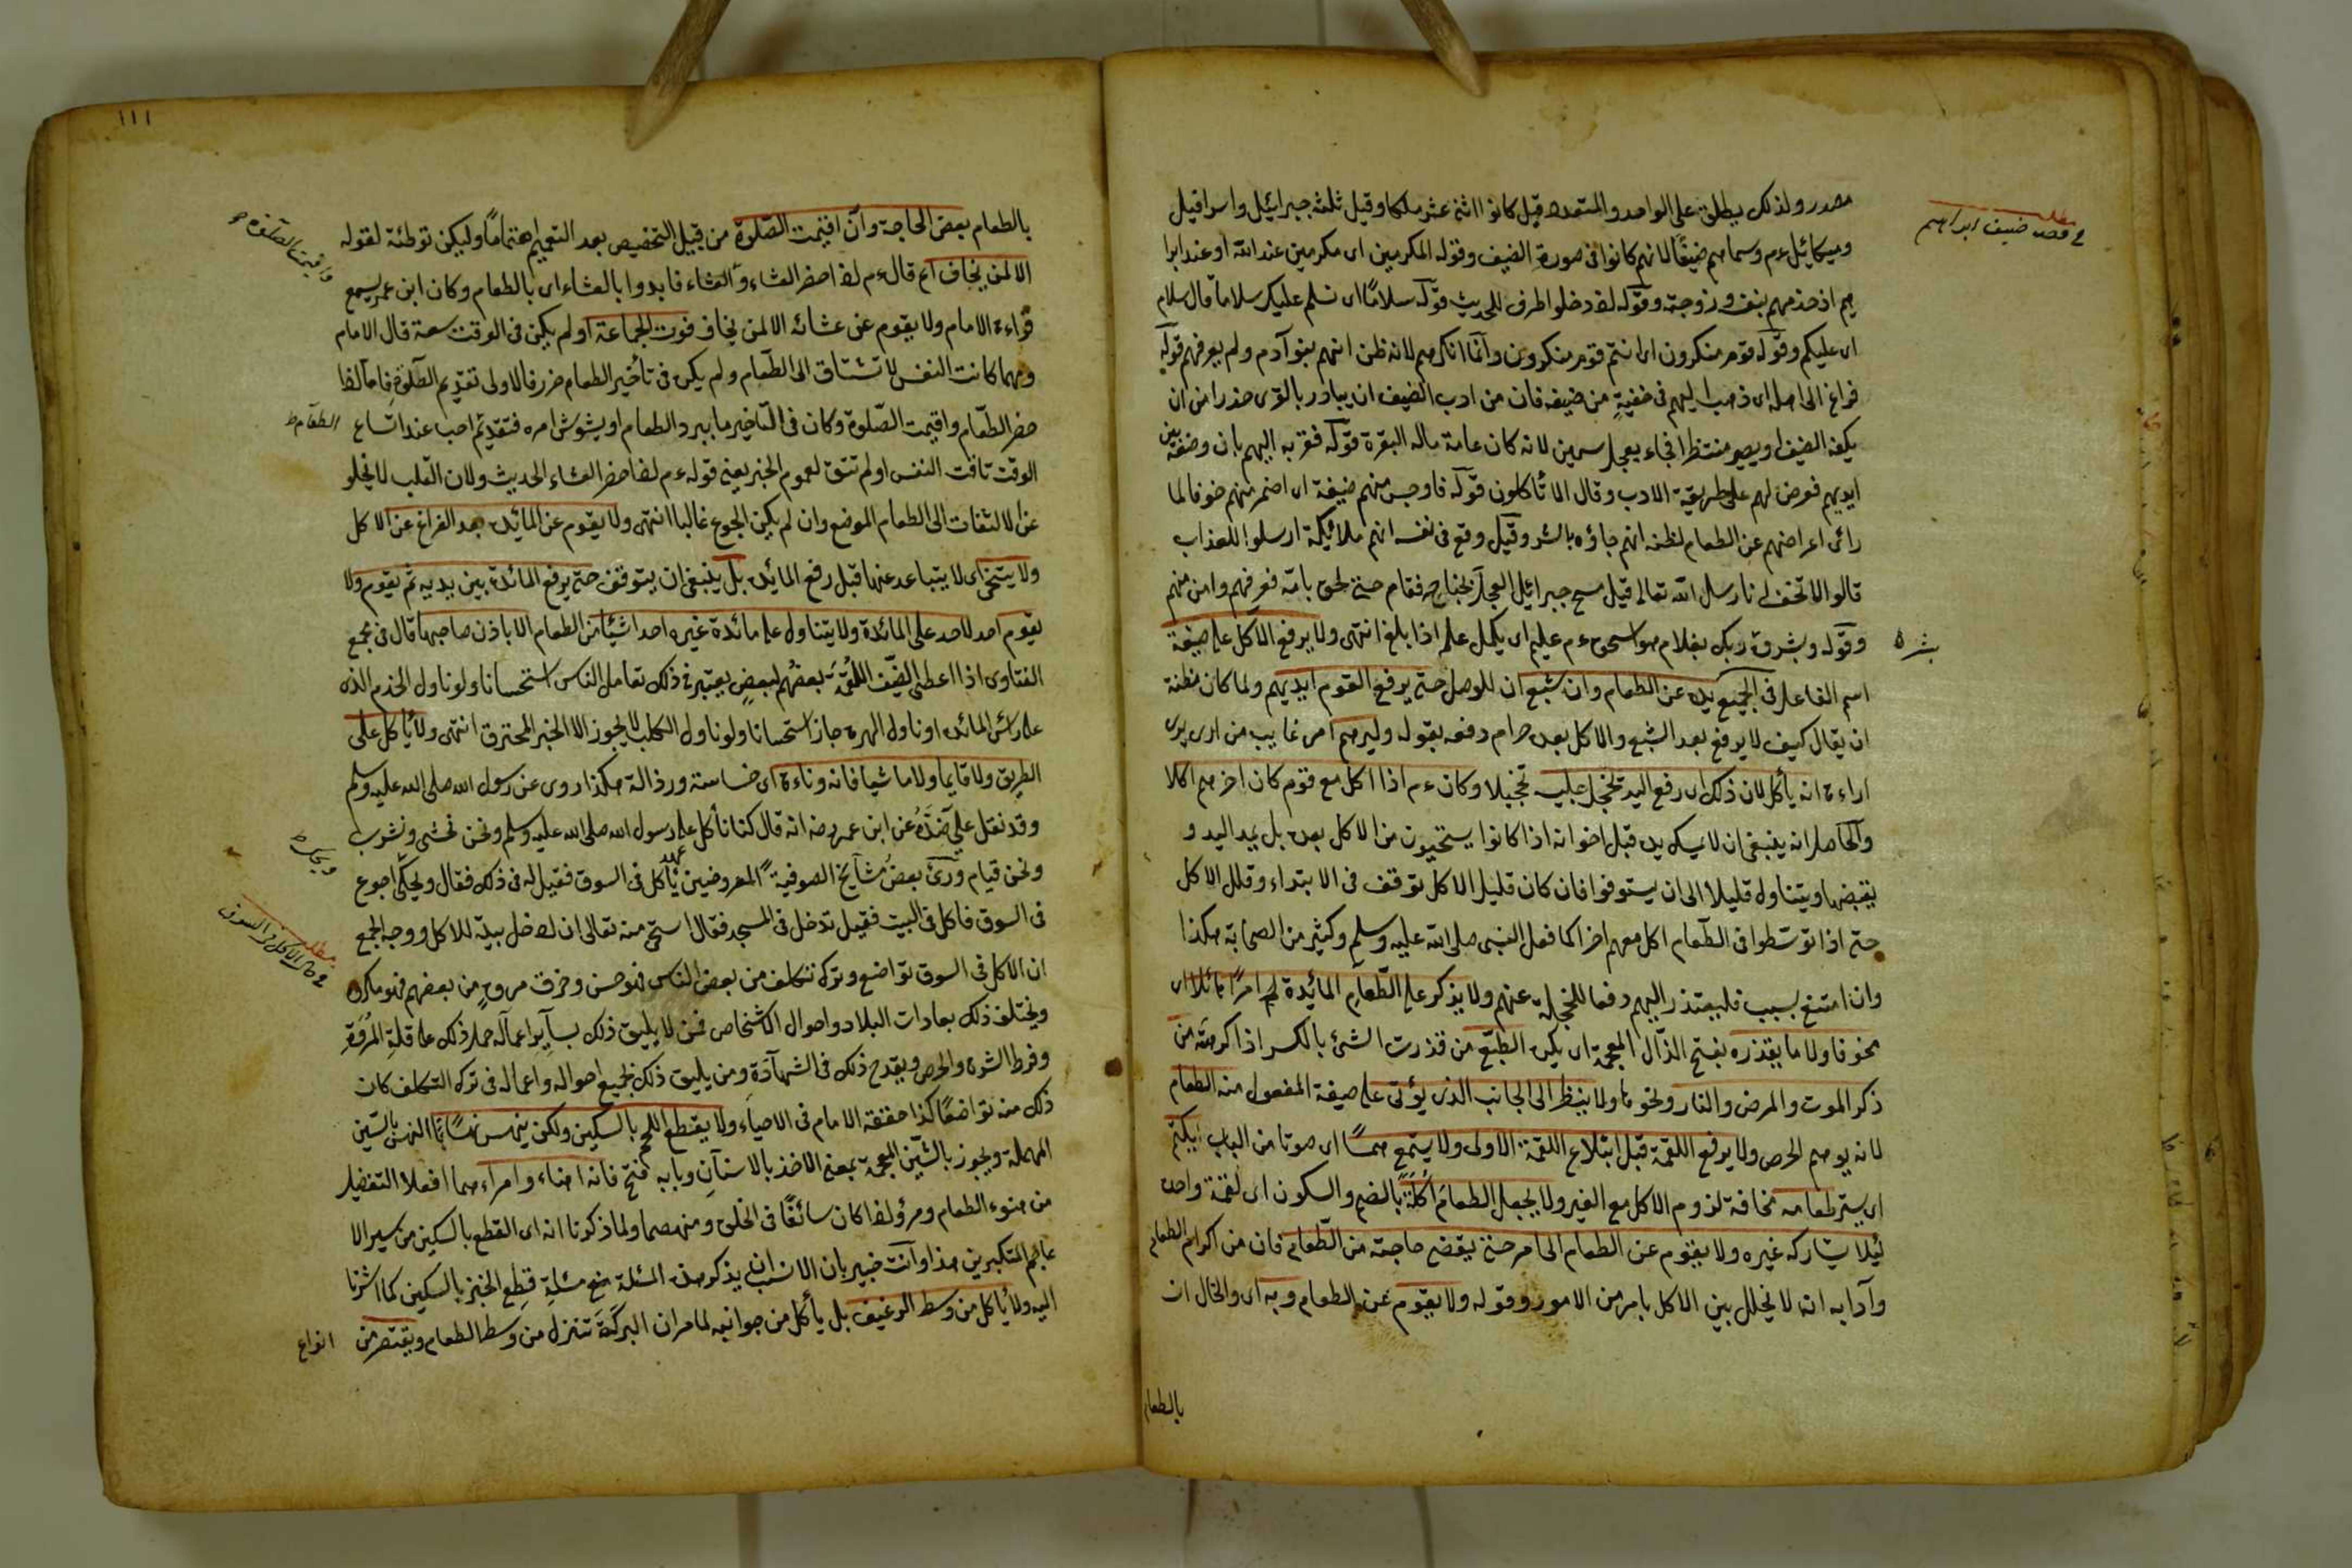 مصدر ولذلك يطلق على الواحد والمتعدد قيل كانوا اثنى عشر ملكا وقيل ثلثة جبرائيل واسرافيل
في قصة ضيف ابراهيم
وميكائيل ءم وسماهم ضيفا لانهم كانوا فى صورة الضيف وقوله المكرمين اى مكرمين عند الله او عند ابرا
هيم اذ خدمهم بنفسه وزوجته وقوله اذ دخلوا ظرف للحديث قوله سلامًا اى نسلم عليك سلاما قال سلام
اى عليكم وقوله قوم منكرون اى انتم قوم منكرون وانما انكرهم لانه ظن انهم بنو آدم ولم يعرفهم قوله
فراغ الى اهله اى ذهب اليهم فى خفية من ضيفه فان من ادب الضيف ان يبادر بالقرى حذرا من ان
يكفه الضيف او يصير منتظرا فجاء بعجل سمين لانه كان عامة ماله البقرة قوله فقربه اليهم بان وضعه بين
ايديهم فعرض لهم على طريقة الادب وقال الا تأكلون قوله فاوجس منهم خيفة اى اضمر منهم خوفا لما
رائى اعراضهم عن الطعام لظنه انهم جاؤه بالشر وقيل وقع فى نفسه انهم ملائيكة ارسلوا للعذاب
قالوا لا تخف انا رسل الله تعالى قيل مسح جبرائيل العجل بجناحه فقام حتى لحق بامه فعرفهم وامن منهم
وقوله وبشروه ربك بغلام هو اسحق ءم عليم اى يكمل علمه اذا بلغ انتهى ولا يرفع الآكل على صيغة
بشره
اسم الفاعل فى الجميع يده عن الطعام وان شبع ان للوصل حتى يرفع القوم ايديهم ولما كان مظنة
ان يقال كيف لا يرفع بعد الشبع والاكل بعده حرام دفعه بقوله وليرهم امر غايب من ارى يرى
اراءة انه يأكل لان ذلك اى رفع اليد تخجل جليسه تخجيلا وكان ءم اذا اكل مع قوم كان اخرهم اكلا
والحاصل انه ينبغى ان لا يمسك يده قبل اخوانه اذا كانوا يستحيون من الاكل بعده بل يمد اليد و
يقبضها ويتناول قليلا الى ان يستوفوا فان كان قليل الاكل توقف فى الابتداء وقلل الاكل
حتى اذا توسطوا فى الطعام اكل معهم اخرا كما فعل النبى صلى الله عليه وسلم وكثير من الصحابة هكذا
وان امتنع بسبب فليعتذر اليهم دفعا للخجلة عنهم ولا يذكر على الطعام المائيدة امرًا هائلا اى
مخوفا ولا ما يقذره بفتح الذال المعجمة اى يكره الطبع من قذرت الشئ بالكسر اذا كرهته من
ذكر الموت والمرض والنار ونحوها ولا ينظر الى الجانب الذى يؤتى على صيغة المفعول منه الطعام
لانه يوهم الحرص ولا يرفع اللقمة قبل ابتلاع اللقمة الاولى ولا يستمع همسًا اى صوتا من الباب
اى يستر طعامه مخافة لزوم الاكل مع الغير ولا يجعل الطعام اكلة بالضم والسكون اى لقمة واحدة
لئلا يشاركه غيره ولا يقوم عن الطعام الى امر حتى يقضى حاجته من الطعام فان من اكرام الطعام
وآدابه انه لا يخلل بين الاكل بامر من الامور وقوله ولا يقوم عن الطعام وبه اى والحال ان
بالطعام
١١١
بالطعام بعض الحاجة وان اقيمت الصلوة من قبيل التخصيص بعد التعميم اهتمامًا وليكن توطئة لقوله
واقيمت الصلوة
الا لمن يخاف اه قال ءم اذا حضر العشاء والعشاء فابدوا بالعشاء اى بالطعام وكان ابن عمر يسمع
قراءة الامام ولا يقوم عن عشائه الا لمن يخاف فوت الجماعة او لم يكن فى الوقت سعة قال الامام
ومهما كانت النفس لا تشتاق الى الطعام ولم يكن فى تأخير الطعام ضرر فالاولى تقديم الصلوة فاما اذا
حضر الطعام واقيمت الصلوة وكان فى التأخير ما يبرد الطعام او يشوش امره فتقديم احب عند اتساع
الطعام
الوقت تاقت النفس او لم تتق لعموم الخبر يعنى قوله ءم اذا حضر العشاء الحديث ولان القلب لا يخلو
عن الالتفات الى الطعام الموضع وان لم يكن الجوع غالبا انتهى ولا يقوم عن المائيدة بعد الفراغ عن الاكل
ولا يتنحى اى لا يتباعد عنها قبل رفع المائدة بل ينبغى ان يتوقف حتى يرفع المائدة بين يديه ثم يقوم ولا
يقوم احد لاحد على المائدة ولا يتناول على مائدة غيره احدا شيئا من الطعام الا باذن صاحبها قال فى مجمع
الفتاوى اذا اعطى الضيف اللقمة بعضهم لبعض يعتبر فى ذلك تعامل الناس استحسانا ولو ناول الخدم الذى
على رأس المائدة او ناول الهرة جاز استحسانا ولو ناول الكلب لا يجوز الا الخبز المحترق انتهى ولا يأكل على
الطريق ولا قايما ولا ماشيا فانه دناءة اى خساسة ورذالة هكذا روى عن رسول الله صلى الله عليه وسلم
وقد نقل على ضده عن ابن عمر رضه انه قال كنا نأكل على عهد رسول الله صلى الله عليه وسلم ونحن نمشى ونشرب
ونحن قيام ورئى بعض مشايخ الصوفية المعروضين يأكل فى السوق فقيل له فى ذلك فقال ويحك اجوع
ويحك
فى السوق فاكل فى البيت فقيل تدخل فى المسجد فقال استحى منه تعالى ان ادخل بيته للاكل ووجه الجمع
مطلب فى حال الاكل فى السوق
ان الاكل فى السوق تواضع وترك تكلف من بعض الناس فهو حسن وخرق مروة من بعضهم فهو مكروه
ويختلف ذلك بعادات البلاد واحوال الاشخاص فمن لا يليق ذلك بساير اعماله حمل ذلك على قلة المروة
وفرط الشره والحرص ويقدح ذلك فى الشهادة ومن يليق ذلك بجميع احواله واعماله فى ترك التكلف كان
ذلك منه تواضعًا كذا حققه الامام فى الاحياء ولا يقطع اللحم بالسكين ولكن ينهس نهسًا النهس بالسين
المهملة ويجوز بالشين المعجمة بمعنى الاخذ بالاسنان وبابه فتح فانه اهناء وامراء هما افعلا التفضيل
من هنوء الطعام ومرؤ اذا كان سائغًا فى الحلق ومنهضما ولما ذكرنا انه اى القطع بالسكين من سير الا
عاجم المتكبرين هذا وانت خبير بان الانسب ان يذكر هذه المسئلة مع مسئلة قطع الخبز بالسكين كما اشرنا
اليه ولا يأكل من وسط الرغيف بل يأكل من جوانبه لما مر ان البركة تنزل من وسط الطعام ويقتصر من
انواع